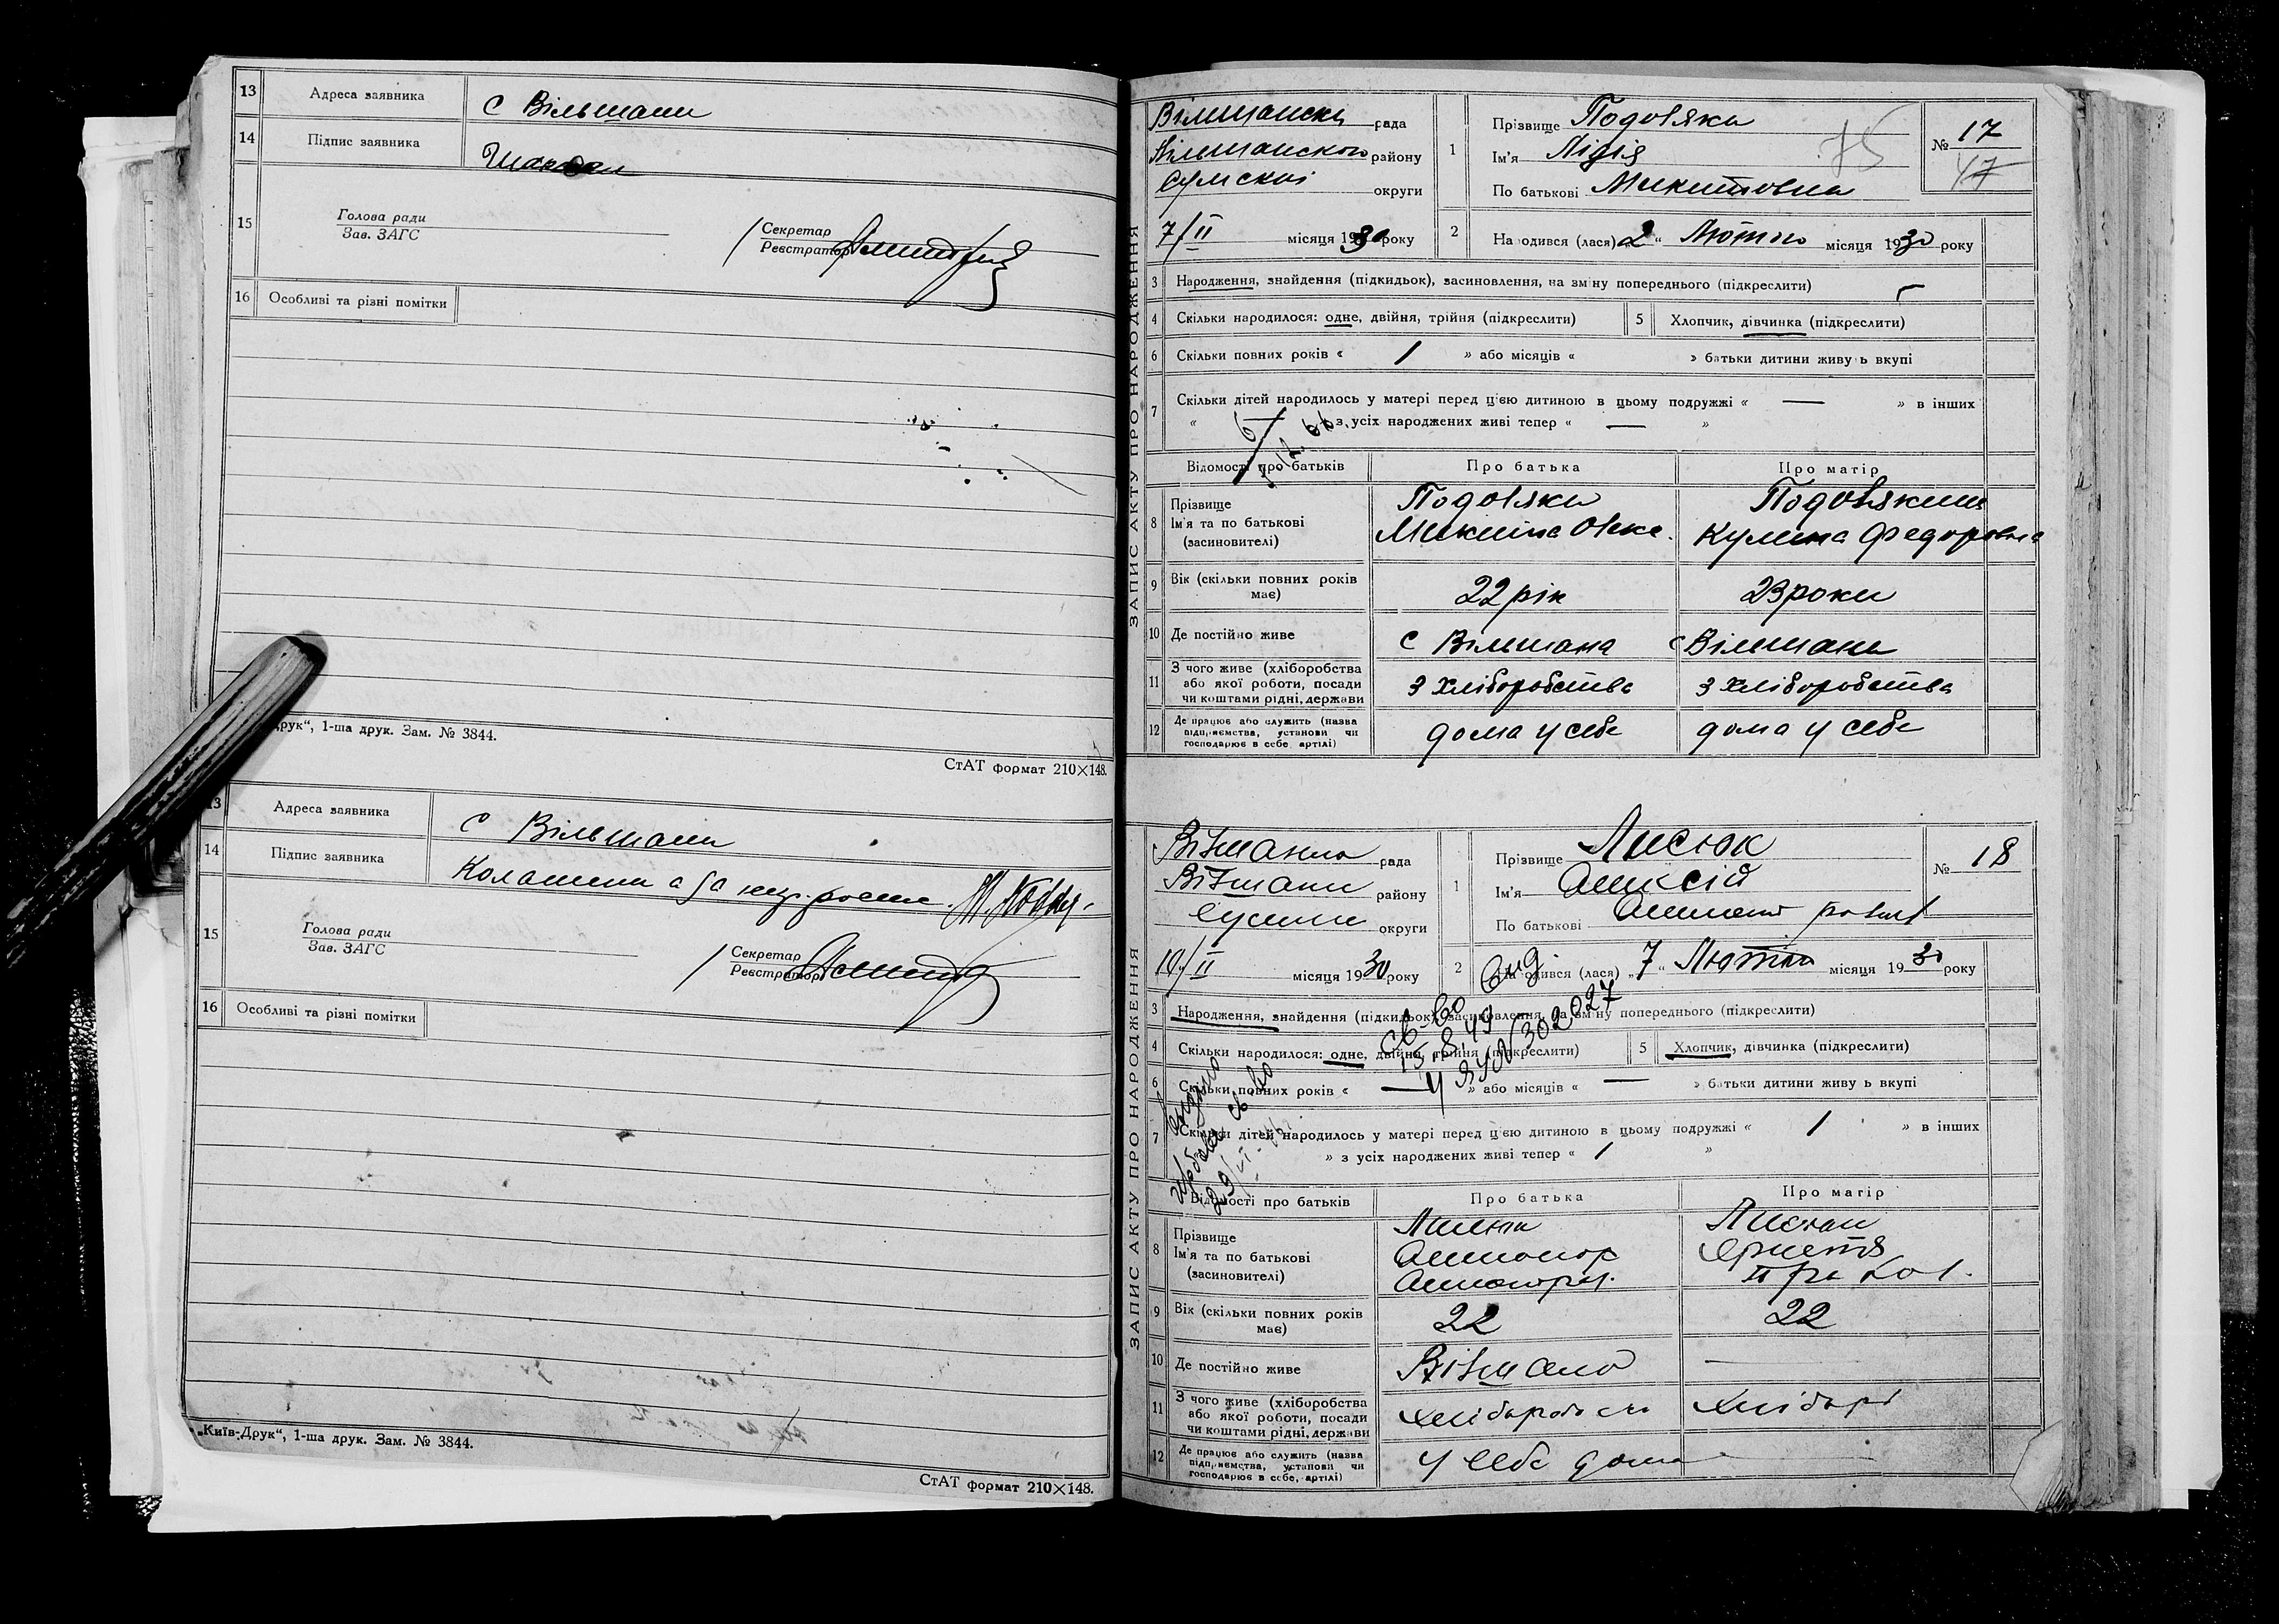 13 Адреса заявника с Вільшани
14 Підпис заявника
15 Голова ради
Зав. ЗАГС
Секретар
Реєстратор
16 Особливі та різні помітки
друк“, 1-ша друк. Зам. № 3844.
СтАТ формат 210×148.
13 Адреса заявника с Вільшани
14 Підпис заявника
15 Голова ради
Зав. ЗАГС
Секретар
Реєстратор
16 Особливі та різні помітки
„Київ-Друк“, 1-ша друк. Зам. № 3844.
СтАТ формат 210×148.
ЗАПИС АКТУ ПРО НАРОДЖЕННЯ
Вілшанска рада
Вільшанского району
Сумскої округи
7/II місяця 1930 року
1 Прізвище Подовяка
Ім'я Лідія
По батькові Микитовна
75
№ 17
47
2 Народився (лася) „2“ Лютого місяця 1930 року
3 Народження, знайдення (підкидьок), засиновлення, на зміну попереднього (підкреслити)
4 Скільки народилося: одне, двійня, трійня (підкреслити)
5 Хлопчик, дівчинка (підкреслити)
6 Скільки повних років « 1 » або місяців « » батьки дитини живуть вкупі
7 Скільки дітей народилось у матері перед цією дитиною в цьому подружжі « — » в інших
« » з усіх народжених живі тепер « — »
Відомості про батьків Про батька Про матір
8 Прізвище
Ім'я та по батькові
(засиновителі)
Подовяка
Микита Овкс.
Подовякина
Кулина Федоровна
9 Вік (скільки повних років має) 22 рік 23 роки
10 Де постійно живе с Вільшана с Вілшани
11 З чого живе (хліборобства
або якої роботи, посади
чи коштами рідні, держави
з хліборобства з хліборобства
12 Де працює або служить (назва
підприємства, установи чи
господарює в себе, артілі)
дома у себе дома у себе
ЗАПИС АКТУ ПРО НАРОДЖЕННЯ
рада
району
округи
10/II місяця 1930 року
1 Прізвище Лисюк
Ім'я Оликсій
По батькові
№ 18
2 Народився (лася) „7“ Лютого місяця 1930 року
3 Народження, знайдення (підкидьок), засиновлення, на зміну попереднього (підкреслити)
4 Скільки народилося: одне, двійня, трійня (підкреслити)
5 Хлопчик, дівчинка (підкреслити)
6 Скільки повних років « — » або місяців « — » батьки дитини живуть вкупі
св-во
15.8.49
302027
7 Скільки дітей народилось у матері перед цією дитиною в цьому подружжі « 1 » в інших
» з усіх народжених живі тепер « 1 »
Відомості про батьків Про батька Про матір
8 Прізвище
Ім'я та по батькові
(засиновителі)
Лисюк
9 Вік (скільки повних років має) 22 22
10 Де постійно живе —
11 З чого живе (хліборобства
або якої роботи, посади
чи коштами рідні, держави
12 Де працює або служить (назва
підприємства, установи чи
господарює в себе, артілі)
у себе дома —